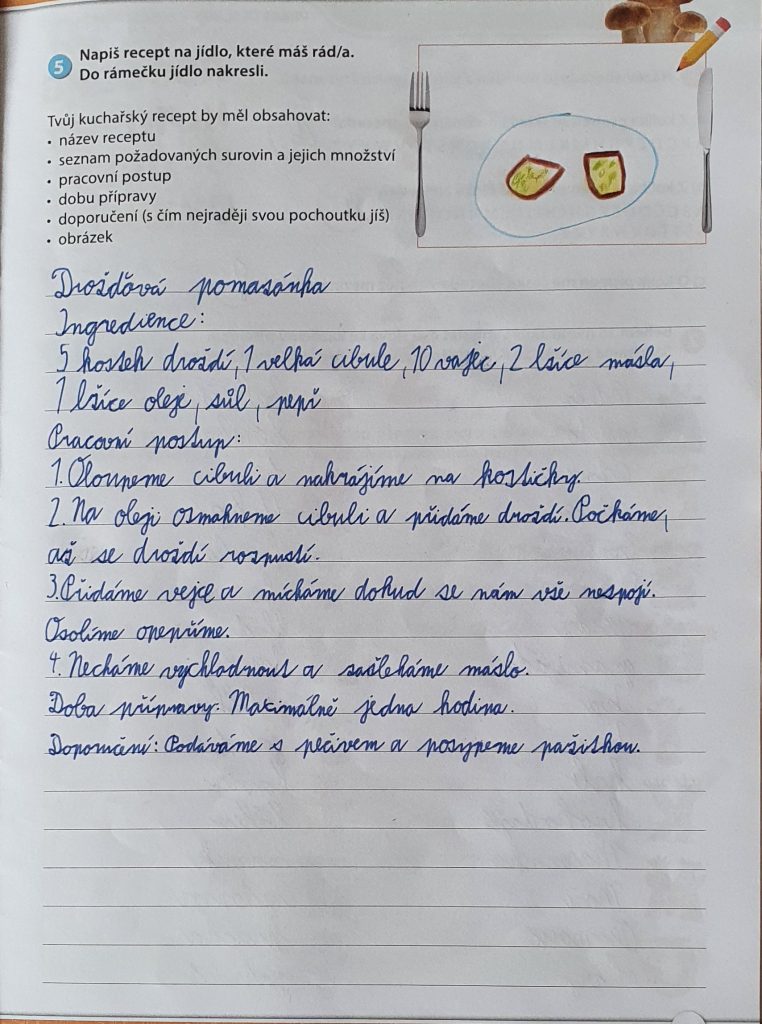 5 Napiš recept na jídlo, které máš rád/a.
Do rámečku jídlo nakresli.
Tvůj kuchařský recept by měl obsahovat:
• název receptu
• seznam požadovaných surovin a jejich množství
• pracovní postup
• dobu přípravy
• doporučení (s čím nejraději svou pochoutku jíš)
• obrázek
Drožďová pomazánka
Ingredience:
5 kostek droždí, 1 velká cibule, 10 vajec, 2 lžíce másla,
1 lžíce oleje, sůl, pepř
Pracovní postup:
1. Oloupeme cibuli a nakrájíme na kostičky.
2. Na oleji osmahneme cibuli a přidáme droždí. Počkáme,
až se droždí rozpustí.
3. Přidáme vejce a mícháme dokud se nám vše nespojí.
Osolíme opepříme.
4. Necháme vychladnout a zašleháme máslo.
Doba přípravy: Maximálně jedna hodina.
Doporučení: Podáváme s pečivem a posypeme pažitkou.